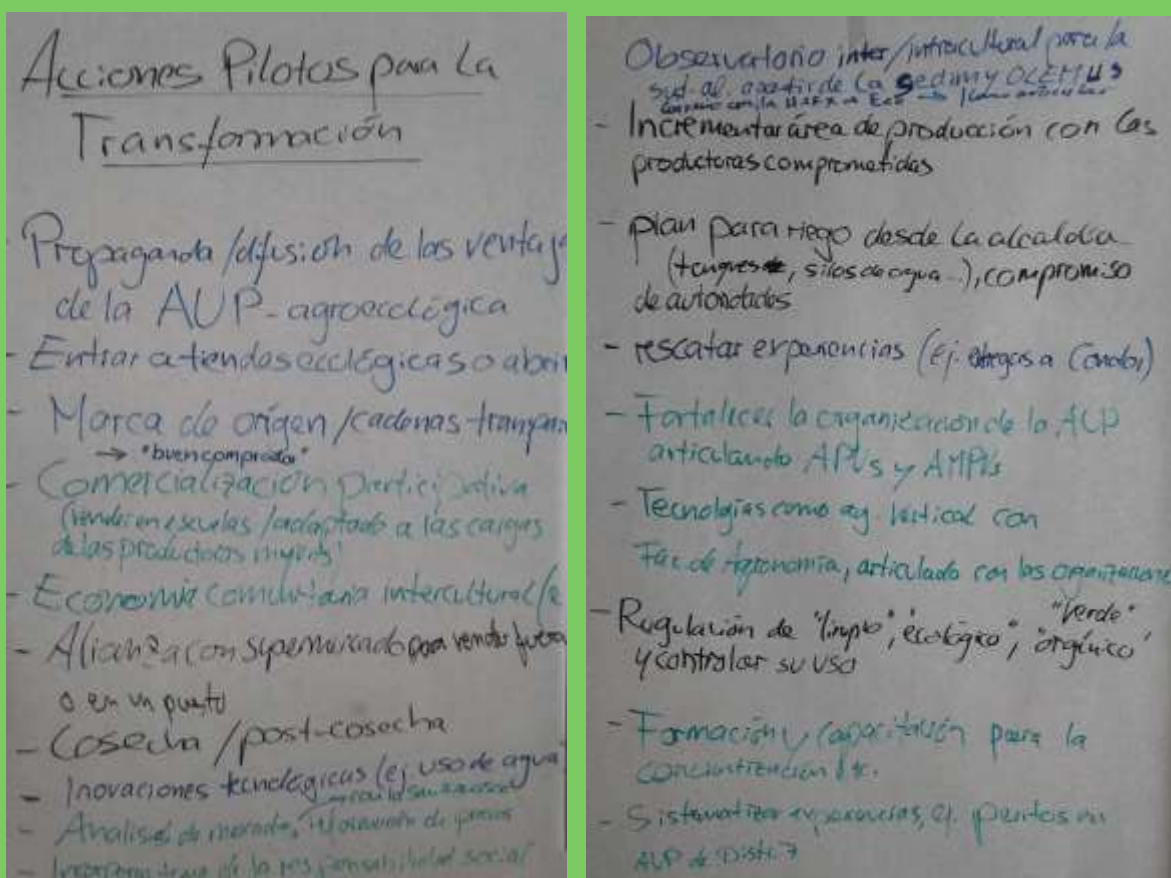 Acciones Pilotos para La
Transformación
- Propaganda/difusión de las ventaj
de la AUP-agroecológica
- Entrar a tiendas ecológicas o abrir
- Marca de origen/cadenas
→ "buen comprador"
- Comercialización participativa
(vender en escuelas/adaptado a las cargas
de las productoras
- Economía comunitaria intercultural
- Alianza con supermercado para vender fuera
o en un puesto
- Cosecha/post-cosecha
- Inovaciones tecnológicas (ej. uso de agua
- Analisis de mercado, información de precios
- de la responsabilidad social
Observatorio inter/intracultural para la
a partir de la
- Incrementar área de producción con las
productoras comprometidas
- plan para riego desde la alcaldía
(tanques, silos de agua..), compromiso
de autoridades
- rescatar experiencias (Ej. entregas a Condor)
- Fortalecer la organización de la AUP
articulando APUs y AMPUs
- Tecnolgías como ag. vertical con
Fac. de Agronomía, articulado con las organizacione
"Verde"
- Regulación de "limpio", "ecológico", "orgánico"
y controlar su uso
- Formación y capacitación para la
concientización
- Sistematizar experiencias, ej. puestos
AUP de Distr. 7